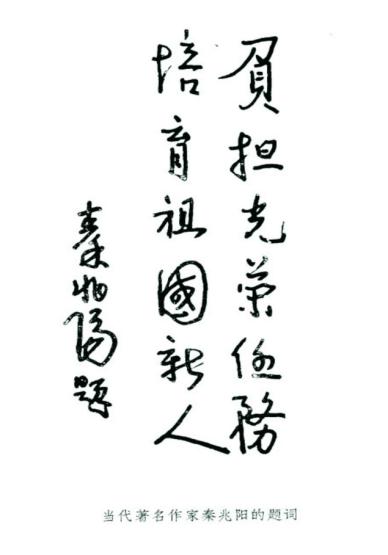 負担光荣任務
培育祖國新人
秦兆陽題
当代著名作家秦兆阳的题词